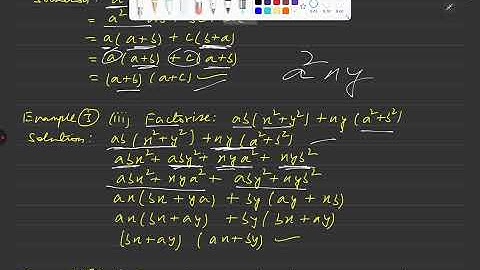 = a²
= a(a+b) + c(b+a)
= a(a+b) + c(a+b)
= (a+b) (a+c)
a²xy
Example ① (iii) Factorize: ab(x²+y²) + xy(a²+b²)
Solution: ab(x²+y²) + xy(a²+b²)
abx² + aby² + xya² + xyb²
abx² + xya² + aby² + xyb²
ax(bx + ya) + by(ay + xb)
ax(bx + ay) + by(bx + ay)
(bx + ay) (ax + by)